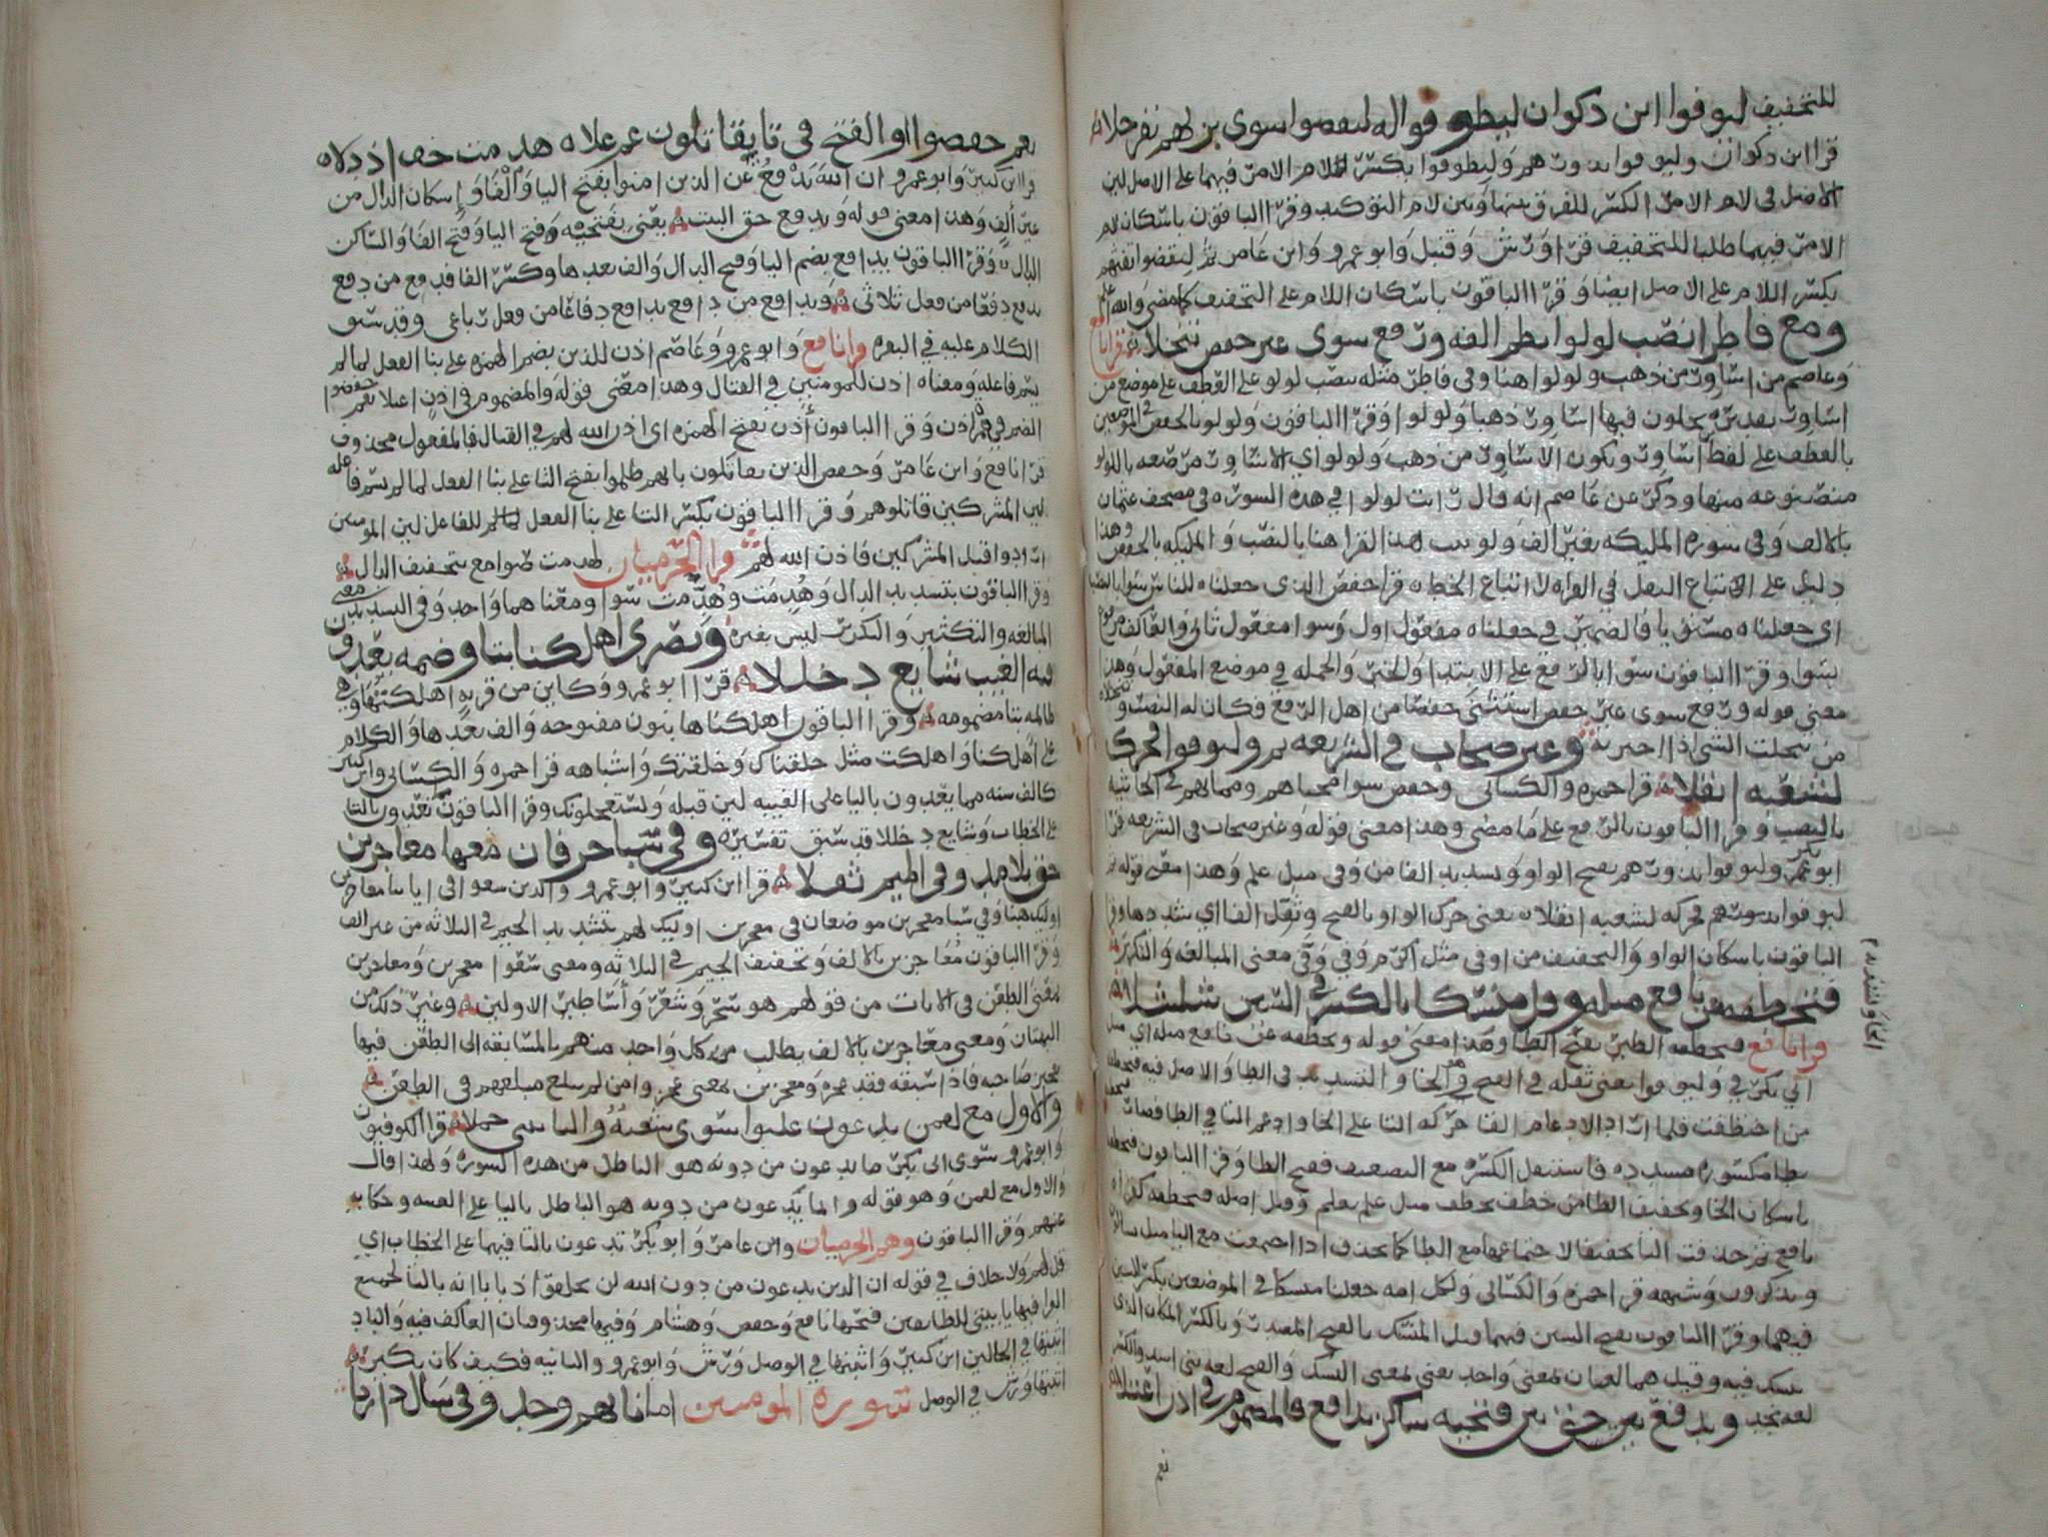 للتخفيف ليوفوا ابن ذكوان ليطوفوا له ليقضوا سوى بزيهم نفر جلا
قرا ابن ذكوان وليوفوا نذورهم وليطوفوا بكسر اللام الامر فيهما على الاصل لين
الاصل في لام الامر الكسر للفرق بينها وبين لام التوكيد وقرا الباقون باسكان لام
الامر فيهما طلبا للتخفيف قرا ورش وقنبل وابو عمرو وابن عامر ثم ليقضوا تفثهم
بكسر اللام على الاصل ايضا وقرا الباقون باسكان اللام على التخفيف كما مضى والله اعلم
ومع فاطر انصب لولوا نظم الفه ورفع سوى غير حفص تنخلا قرا نافع
وعاصم من اساور من ذهب ولولوا هنا وفي فاطر مثله بنصب لولو على العطف على موضع من
اساور بتقديره يحلون فيها اساور ذهبا ولولوا وقرا الباقون ولولو بالخفض في الموضعين
بالعطف على لفظ اساور وتكون الاساور من ذهب ولولو اي الاساور مرصعه باللولو
منصنوعه منها وذكر عن عاصم انه قال رايت لولوا في هذه السوره في مصحف عثمان
بالالف وفي سوره المليكه بغير الف ولو نسب هذا القرا هنا بالنصب والمليكه بالخفض وهذا
دليل على الاتباع النقل في القراه لا اتباع الخط ه قرا حفص الذي جعلناه للناس سوا بالنصب
اي جعلناه مستويا فالضمير في جعلناه مفعول اول وسوا مفعول ثاني والعاكف مرفوع
بسوا وقرا الباقون سوا بالرفع على الابتدا والخبر والجمله في موضع المفعول وهذا
معنى قوله ورفع سوى غير حفص استثنى حفصا من اهل الرفع وكان له النصب وتنخلا
من نخلت الشي اذا اخترته وغير صحاب في الشريعه ثم وليوفوا فحركه
لشعبه اثقلا قرا حمزه والكسائي وحفص سوا محياهم ومماتهم في الجاثيه
بالنصب وقرا الباقون بالرفع على ما مضى وهذا معنى قوله وغير صحاب في الشريعه قرا
ابو بكر وليوفوا نذورهم بفتح الواو وتشديد الفا من وفى مثل علم وهذا معنى قوله ثم
ليوفوا نذورهم فحركه لشعبه اثقلا يعني حرك الواو بالفتح وثقل الفا اي شددها وقرا
الباقون باسكان الواو والتخفيف من اوفى مثل اكرم وفي وفى معنى المبالغه والتكثير
فتخطفه عن نافع مثله وقل منسكا بالكسر في السين شلشلا
قرا نافع فتخطفه الطير بفتح الطا وهذا معنى قوله وتخطفه عن نافع مثله اي مثل
ابي بكر في وليوفوا يعني ثقله في الفتح في الخا والتشديد في الطا والاصل فيه فتختطفه
من اختطفت فلما اراد الادغام القا حركه التا على الخا وادغم التا في الطا فصارت فتخطفه
بطا مكسوره مشدده فاستثقل الكسره مع التضعيف ففتح الطا وقرا الباقون فتخطفه
باسكان الخا وتخفيف الطا من خطف يخطف مثل علم يعلم وقيل اصله فتخطفه كقراه
نافع ثم حذفت التا تخفيفا لاجتماعها مع الطا كما تحذف اذا اجتمعت مع اليا مثل تسالون
وتذكرون وشبهه قرا حمزه والكسائي ولكل امه جعلنا منسكا في الموضعين بكسر السين
فيهما وقرا الباقون بفتح السين فيهما قيل المنسك بالفتح المصدر وبالكسر المكان الذي
ينسك فيه وقيل هما لغتان بمعنى واحد يعني بمعنى النسك والفتح لغه بني اسد والكسر
لغه نجد ويدفع بين حق بين فتحيه ساكن يدافع والمضموم في اذن اعتلا
نعم
الخا وتشديد
نعم حفصوا والفتح في تا يقاتلون عم علاه هدمت خف اذ دلاه
قرا ابن كثير وابو عمرو ان الله يدفع عن الذين امنوا بفتح اليا والفا واسكان الدال من
غير الف وهذا معنى قوله ويدفع حق البيت يعني بفتحيه وفتح اليا وفتح الفا والساكن
الدال وقرا الباقون يدافع بضم اليا وفتح الدال والف بعدها وكسر الفا فيدفع من دفع
يدفع دفعا من فعل ثلاثي ويدافع من دافع يدافع دفاعا من فعل رباعي وقد سبق
الكلام عليه في البقره قرا نافع وابو عمرو وعاصم اذن للذين بضم الهمزه على بنا الفعل لما لم
يسم فاعله ومعناه اذن للمومنين في القتال وهذا معنى قوله والمضموم في اذن اعتلا نعم حفظوا
الضم في همز اذن وقرا الباقون اذن بفتح الهمزه اي اذن الله لهم في القتال فالمفعول محذوف
قرا نافع وابن عامر وحفص الذين يقاتلون بانهم ظلموا بفتح التا على بنا الفعل لما لم يسم فاعله
لين المشركين قاتلوهم وقرا الباقون بكسر التا على بنا الفعل للفاعل لين المومنين
ارادوا قتل المشركين فاذن الله لهم قرا الحرميان لهدمت صوامع بتخفيف الدال
وقرا الباقون بتشديد الدال وهدمت وهدمت سوا ومعناهما واحد وفي التشديد معنى
المبالغه والتكثير والتكرير ليس بغيره وبصري اهلكنا بتا وضمه يعدو
فيه الغيب شايع دخللا قرا ابو عمرو وكاين من قريه اهلكتها وهي
ظالمه بتا مضمومه وقرا الباقون اهلكناها بنون مفتوحه والف بعدها والكلام
على اهلكنا واهلكت مثل خلقناك وخلقتك واشباهه قرا حمزه والكسائي وابن كثير
كالف سنه مما يعدون باليا على الغيبه لين قبله ويستعجلونك وقرا الباقون تعدون بالتا
على الخطاب وشايع دخللا قد سبق تفسيره وفي سبا حرفان معها معاجزين
حق بلا مد وفي الجيم ثقلا قرا ابن كثير وابو عمرو والذين سعوا في اياتنا معاجزين
اوليك هنا وفي سبا معجزين موضعان في معجزين اوليك لهم بتشديد الجيم في الثلاثه من غير الف
وقرا الباقون معاجزين بالالف وتخفيف الجيم في الثلاثه ومعنى سعوا معجزين ومعاجزين
بمعنى الطعن في الايات من قولهم هو سحر وشعر واساطير الاولين وغير ذلك من
البهتان ومعنى معاجزين بالالف يطلب من كل واحد منهم بالمسابقه الى الطعن فيها
تعجيز صاحبه فاذا سبقه فقد عجزه ومعجزين بمعنى عجز وامن لم يبلغ مبلغهم في الطعن
والاول مع لقمن يدعون غلبوا سوى شعبه واليا بيتي جملا قرا الكوفيون
وابو عمرو سوى ابي بكر ما يدعون من دونه هو الباطل من هذه السوره ولهذا قال
والاول مع لقمن وهو قوله وانما يدعون من دونه هو الباطل باليا على الغيبه وحكايه
عنهم وقرا الباقون وهم الحرميان وابن عامر وابو بكر تدعون بالتا فيهما على الخطاب اي
قل لهم ولا خلاف في قوله ان الذين يدعون من دون الله لن يخلقوا ذبابا انه بالتا لجميع
القرا فيها يا بيتي للطايفين فتحها نافع وحفص وهشام وفيها محذوفتان العاكف فيه والباد
اثبتها في الحالين ابن كثير واثبتها في الوصل ورش وابو عمرو والثانيه فكيف كان نكير
اثبتها ورش في الوصل سوره المومنين اماناتهم وحد وفي سال داريا